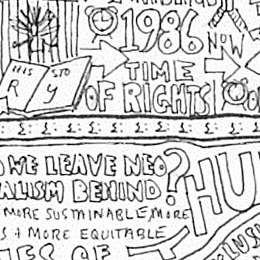 1986
NOW
HIS STO
R Y
TIME
OF RIGHTS
WE LEAVE NEO
ALISM BEHIND?
HU
MORE SUSTAINABLE, MORE
S + MORE EQUITABLE
OF